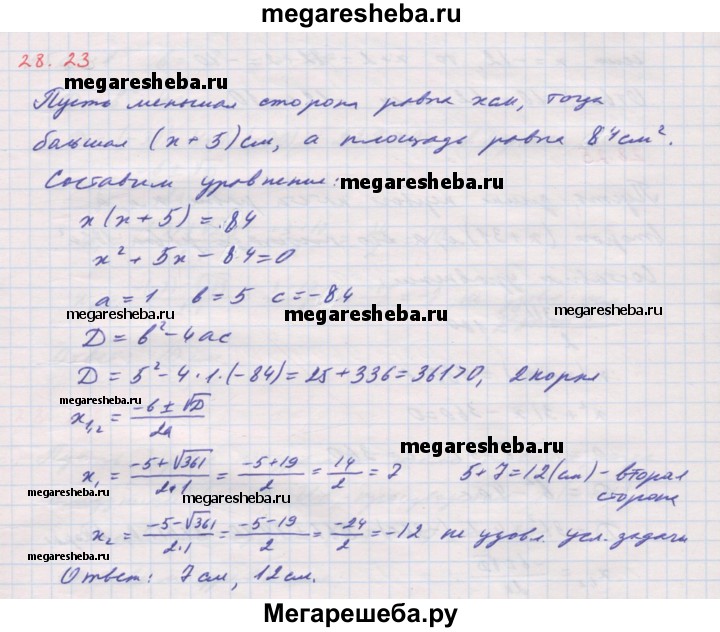 megaresheba.ru
28.23
megaresheba.ru
Пусть меньшая сторона равна x см, тогда
большая (x + 5) см, а площадь равна 84 см².
Составим уравнение: megaresheba.ru
x(x + 5) = 84
x² + 5x - 84 = 0
a = 1 b = 5 c = -84
megaresheba.ru megaresheba.ru megaresheba.ru
D = b² - 4ac
D = 5² - 4 · 1 · (-84) = 25 + 336 = 361 > 0, 2 корня
x₁,₂ = (-b ± √D)/2a
megaresheba.ru
x₁ = (-5 + √361)/(2 · 1) = (-5 + 19)/2 = 14/2 = 7 5 + 7 = 12 (см) - вторая
сторона
megaresheba.ru megaresheba.ru
x₂ = (-5 - √361)/(2 · 1) = (-5 - 19)/2 = -24/2 = -12 не удовл. усл. задачи
megaresheba.ru
Ответ: 7 см, 12 см.
Мегарешеба.ру